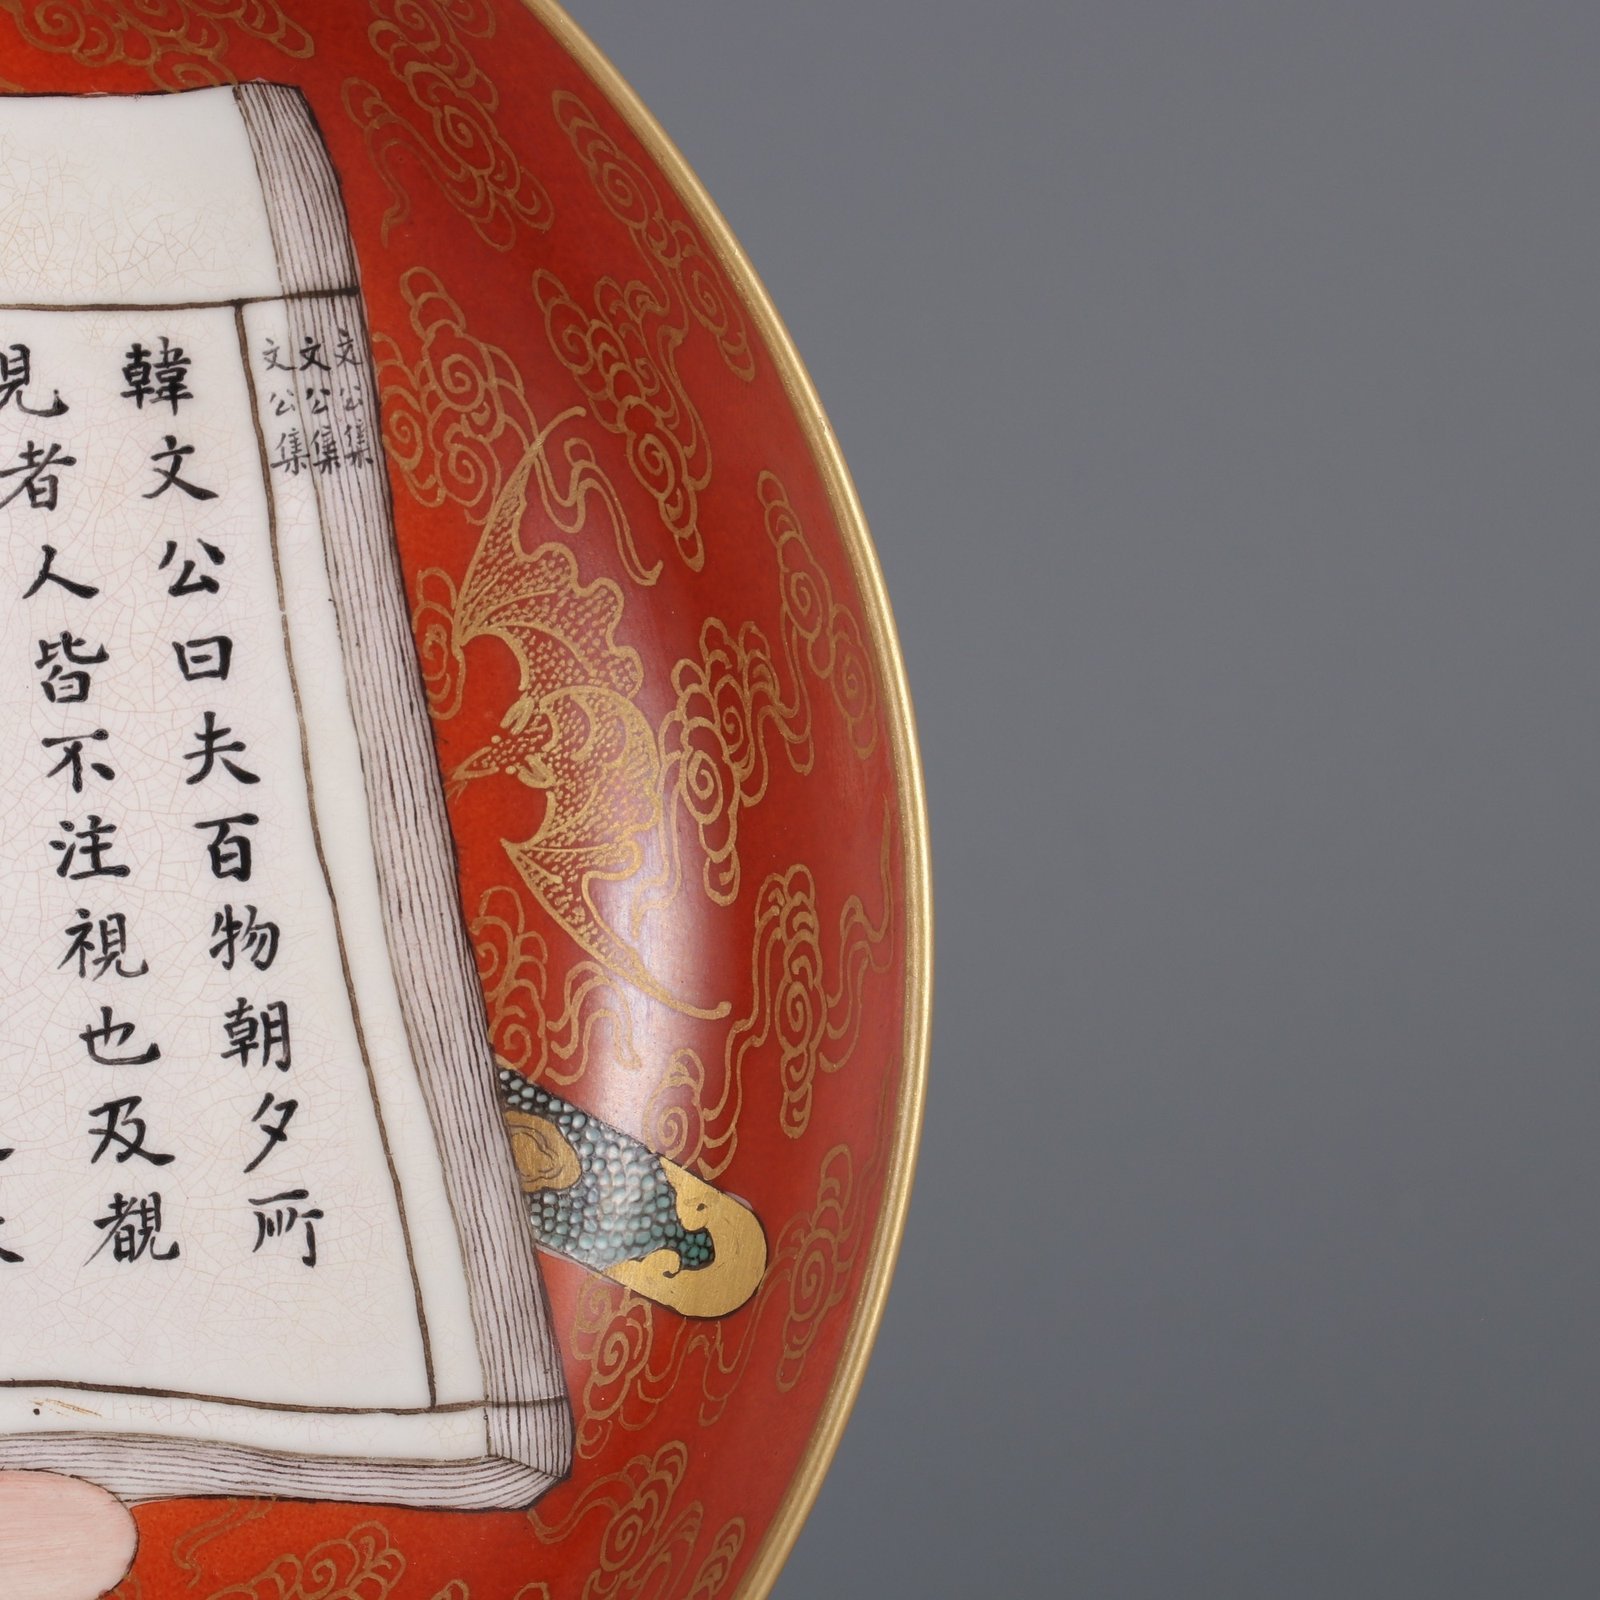 文公集
文公集
文公集
韓文公曰夫百物朝夕所
見者人皆不注視也及覩